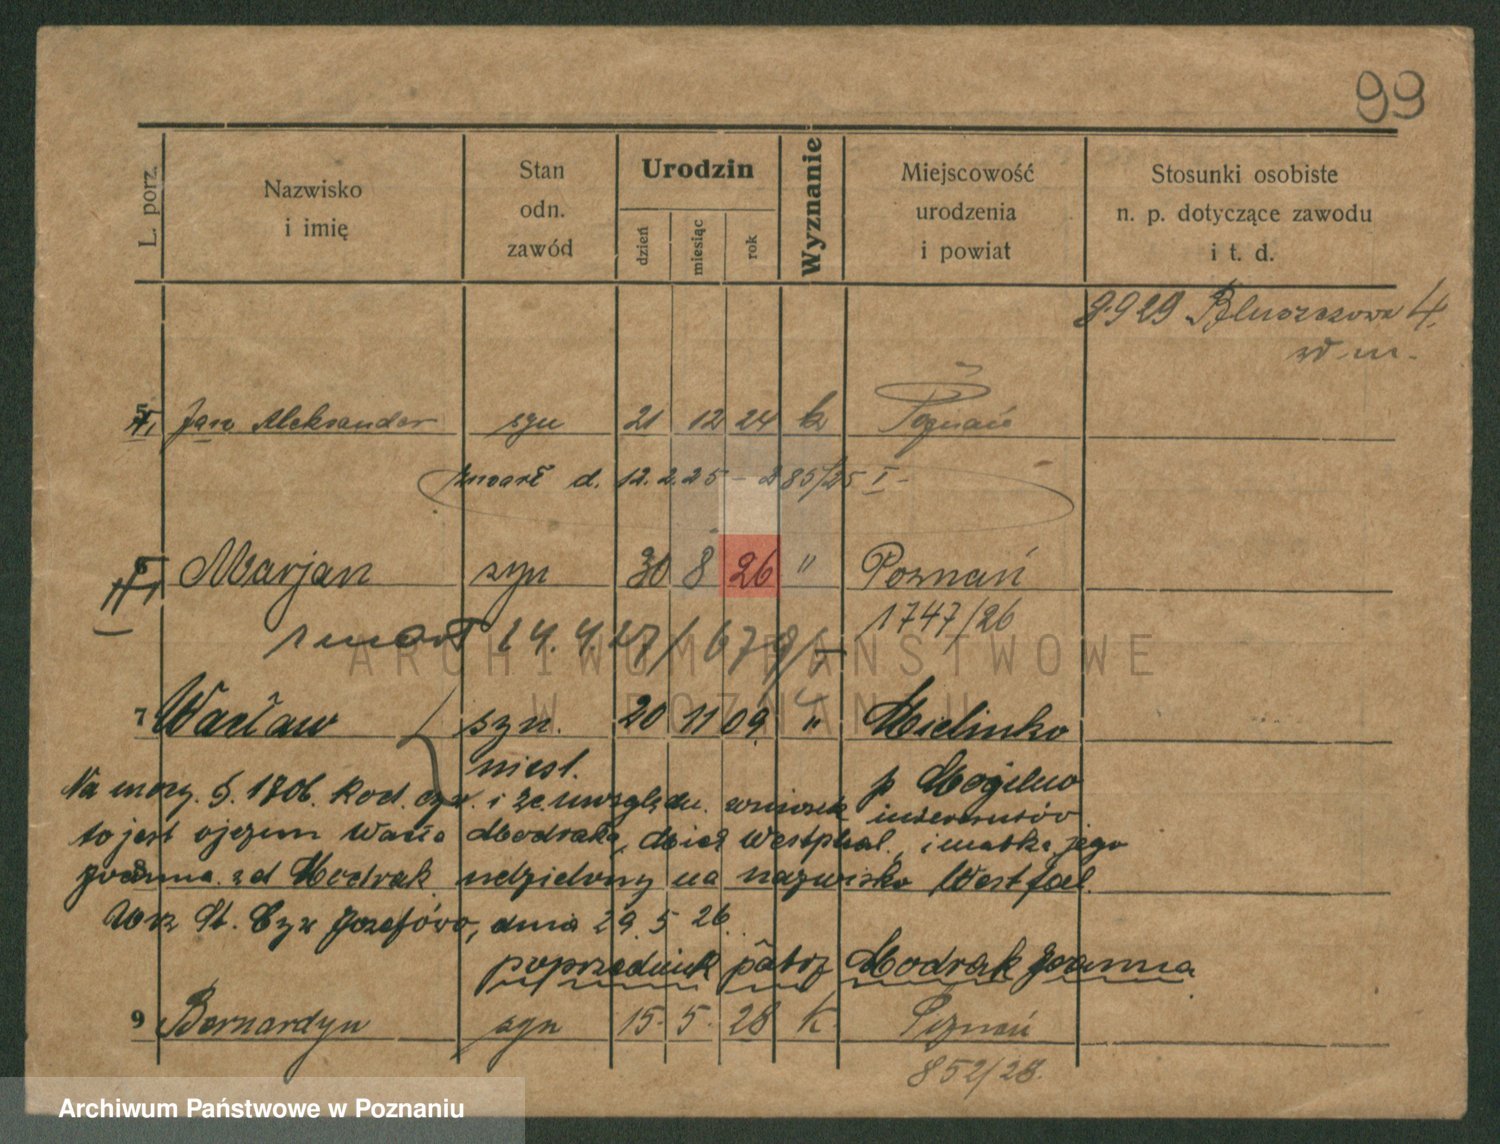 99
L. porz.
Nazwisko i imię
Stan odn. zawód
Urodzin
dzień
miesiąc
rok
Wyznanie
Miejscowość urodzenia i powiat
Stosunki osobiste n. p. dotyczące zawodu i t. d.
8929 Bluszczowa 4.
5 Jan Aleksander syn 21 12 24 k Poznań
zmarł d. 12.2.25 - 285/25 I -
6 Marjan syn 30 8 26 " Poznań
1747/26
zmarł 24.4.27/ 679/
ARCHIWUM PAŃSTWOWE
W POZNANIU
7 Wacław syn. 20 11 09 " Mielinko
niesl. p Mogilno
Na mocy. §. 1706. kod. cyw. i ze. uwzględu. wniosek
to jest ojczym Modraka, Westphal, i matka jego
Joanna. zd Modrak. udzielony na nazwisko Westfal.
Urz St. Cyw Józefowo, dnia 29.5 26.
poprzednik patrz Modrak Joanna
9 Bernardyn syn 15. 5. 28 k. Poznań
852/28.
Archiwum Państwowe w Poznaniu